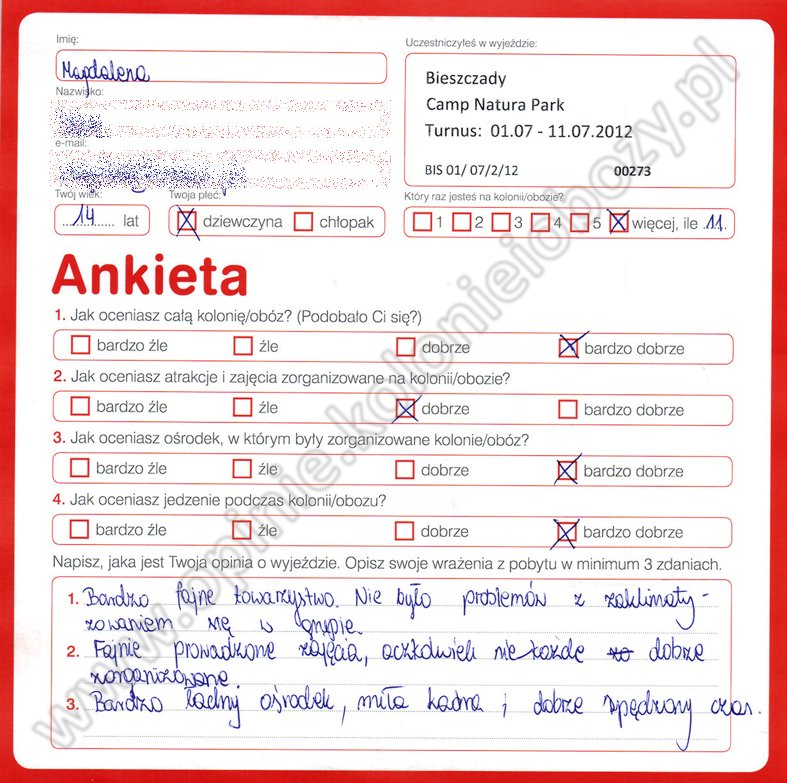 Imię:
Magdalena
Nazwisko:
e-mail:
Twój wiek:
14 lat
Twoja płeć:
dziewczyna chłopak
Uczestniczyłeś w wyjeździe:
Bieszczady
Camp Natura Park
Turnus: 01.07 - 11.07.2012
BIS 01/ 07/2/12 00273
Który raz jesteś na kolonii/obozie?
1 2 3 4 5 więcej, ile 11.
Ankieta
1. Jak oceniasz całą kolonię/obóz? (Podobało Ci się?)
bardzo źle źle dobrze bardzo dobrze
2. Jak oceniasz atrakcje i zajęcia zorganizowane na kolonii/obozie?
bardzo źle źle dobrze bardzo dobrze
3. Jak oceniasz ośrodek, w którym były zorganizowane kolonie/obóz?
bardzo źle źle dobrze bardzo dobrze
4. Jak oceniasz jedzenie podczas kolonii/obozu?
bardzo źle źle dobrze bardzo dobrze
Napisz, jaka jest Twoja opinia o wyjeździe. Opisz swoje wrażenia z pobytu w minimum 3 zdaniach.
1. Bardzo fajne towarzystwo. Nie było problemów z zaklimaty-
zowaniem się w grupie.
2. Fajnie prowadzone zajęcia, aczkolwiek nie każde dobrze
zorganizowane
3. Bardzo ładny ośrodek, miła kadra i dobrze spędzony czas.
www.opinie.kolonieiobozy.pl